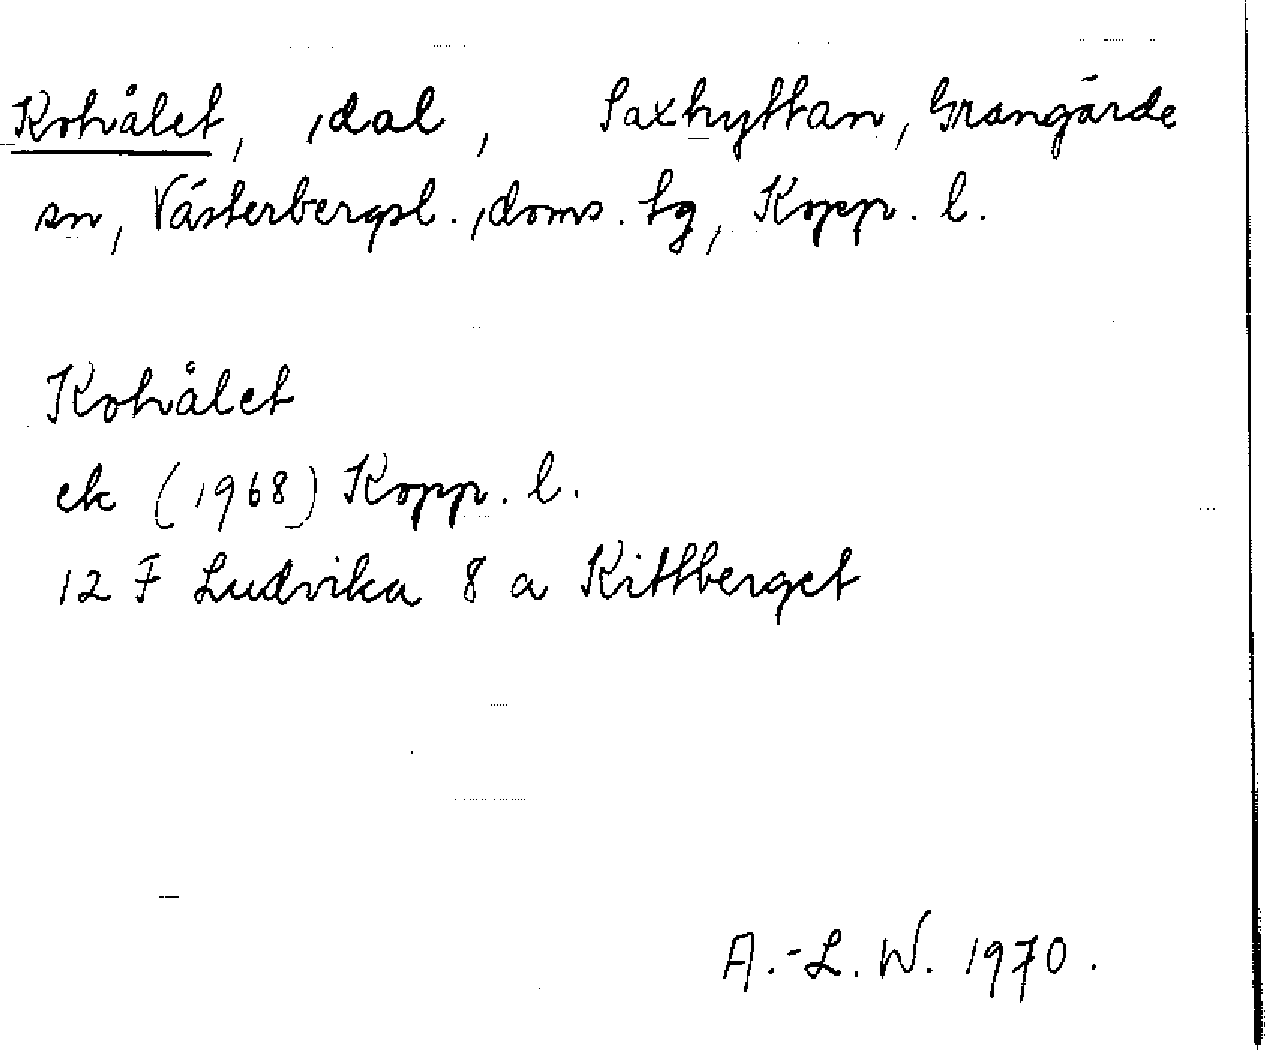 Kohålet, dal, Saxhyttan, Grangärde
sn, Västerbergsl. doms. tg, Kopp. l.
Kohålet
ek (1968) Kopp. l.
12 F Ludvika 8 a Kittberget
A.-L. W. 1970.